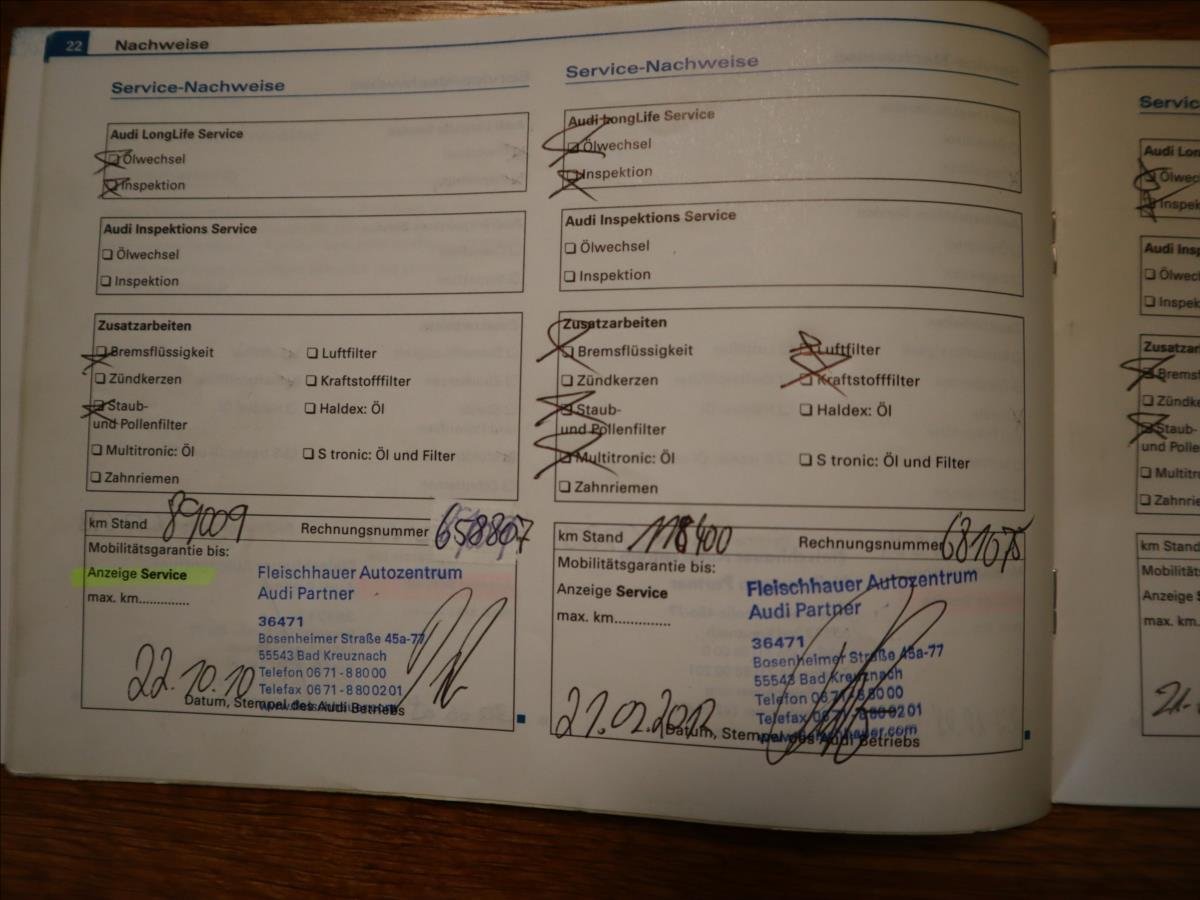 22 Nachweise
Service-Nachweise
Audi LongLife Service
Ölwechsel
Inspektion
Audi Inspektions Service
Ölwechsel
Inspektion
Zusatzarbeiten
Bremsflüssigkeit Luftfilter
Zündkerzen Kraftstofffilter
Staub- Haldex: Öl
und Pollenfilter
Multitronic: Öl S tronic: Öl und Filter
Zahnriemen
km Stand 89009 Rechnungsnummer 658807
Mobilitätsgarantie bis:
Anzeige Service
max. km.............
Fleischhauer Autozentrum
Audi Partner
36471
Bosenheimer Straße 45a-77
55543 Bad Kreuznach
Telefon 06 71 - 8 80 00
Telefax 06 71 - 8 80 02 01
22.10.10
Datum, Stempel des Audi Betriebs
Service-Nachweise
Audi LongLife Service
Ölwechsel
Inspektion
Audi Inspektions Service
Ölwechsel
Inspektion
Zusatzarbeiten
Bremsflüssigkeit Luftfilter
Zündkerzen Kraftstofffilter
Staub- Haldex: Öl
und Pollenfilter
Multitronic: Öl S tronic: Öl und Filter
Zahnriemen
km Stand 118400 Rechnungsnummer 681075
Mobilitätsgarantie bis:
Anzeige Service
max. km.............
Fleischhauer Autozentrum
Audi Partner
36471
Bosenheimer Straße 45a-77
55543 Bad Kreuznach
Telefon 06 71 - 8 80 00
Telefax 06 71 - 8 80 02 01
21.02.2012
Datum, Stempel des Audi Betriebs
Servic
Audi Lon
Ölwec
Inspek
Audi Insp
Ölwec
Inspek
Zusatzar
Bremsf
Zündke
Staub-
und Polle
Multitr
Zahnrie
km Stand
Mobilitäts
Anzeige S
max. km...